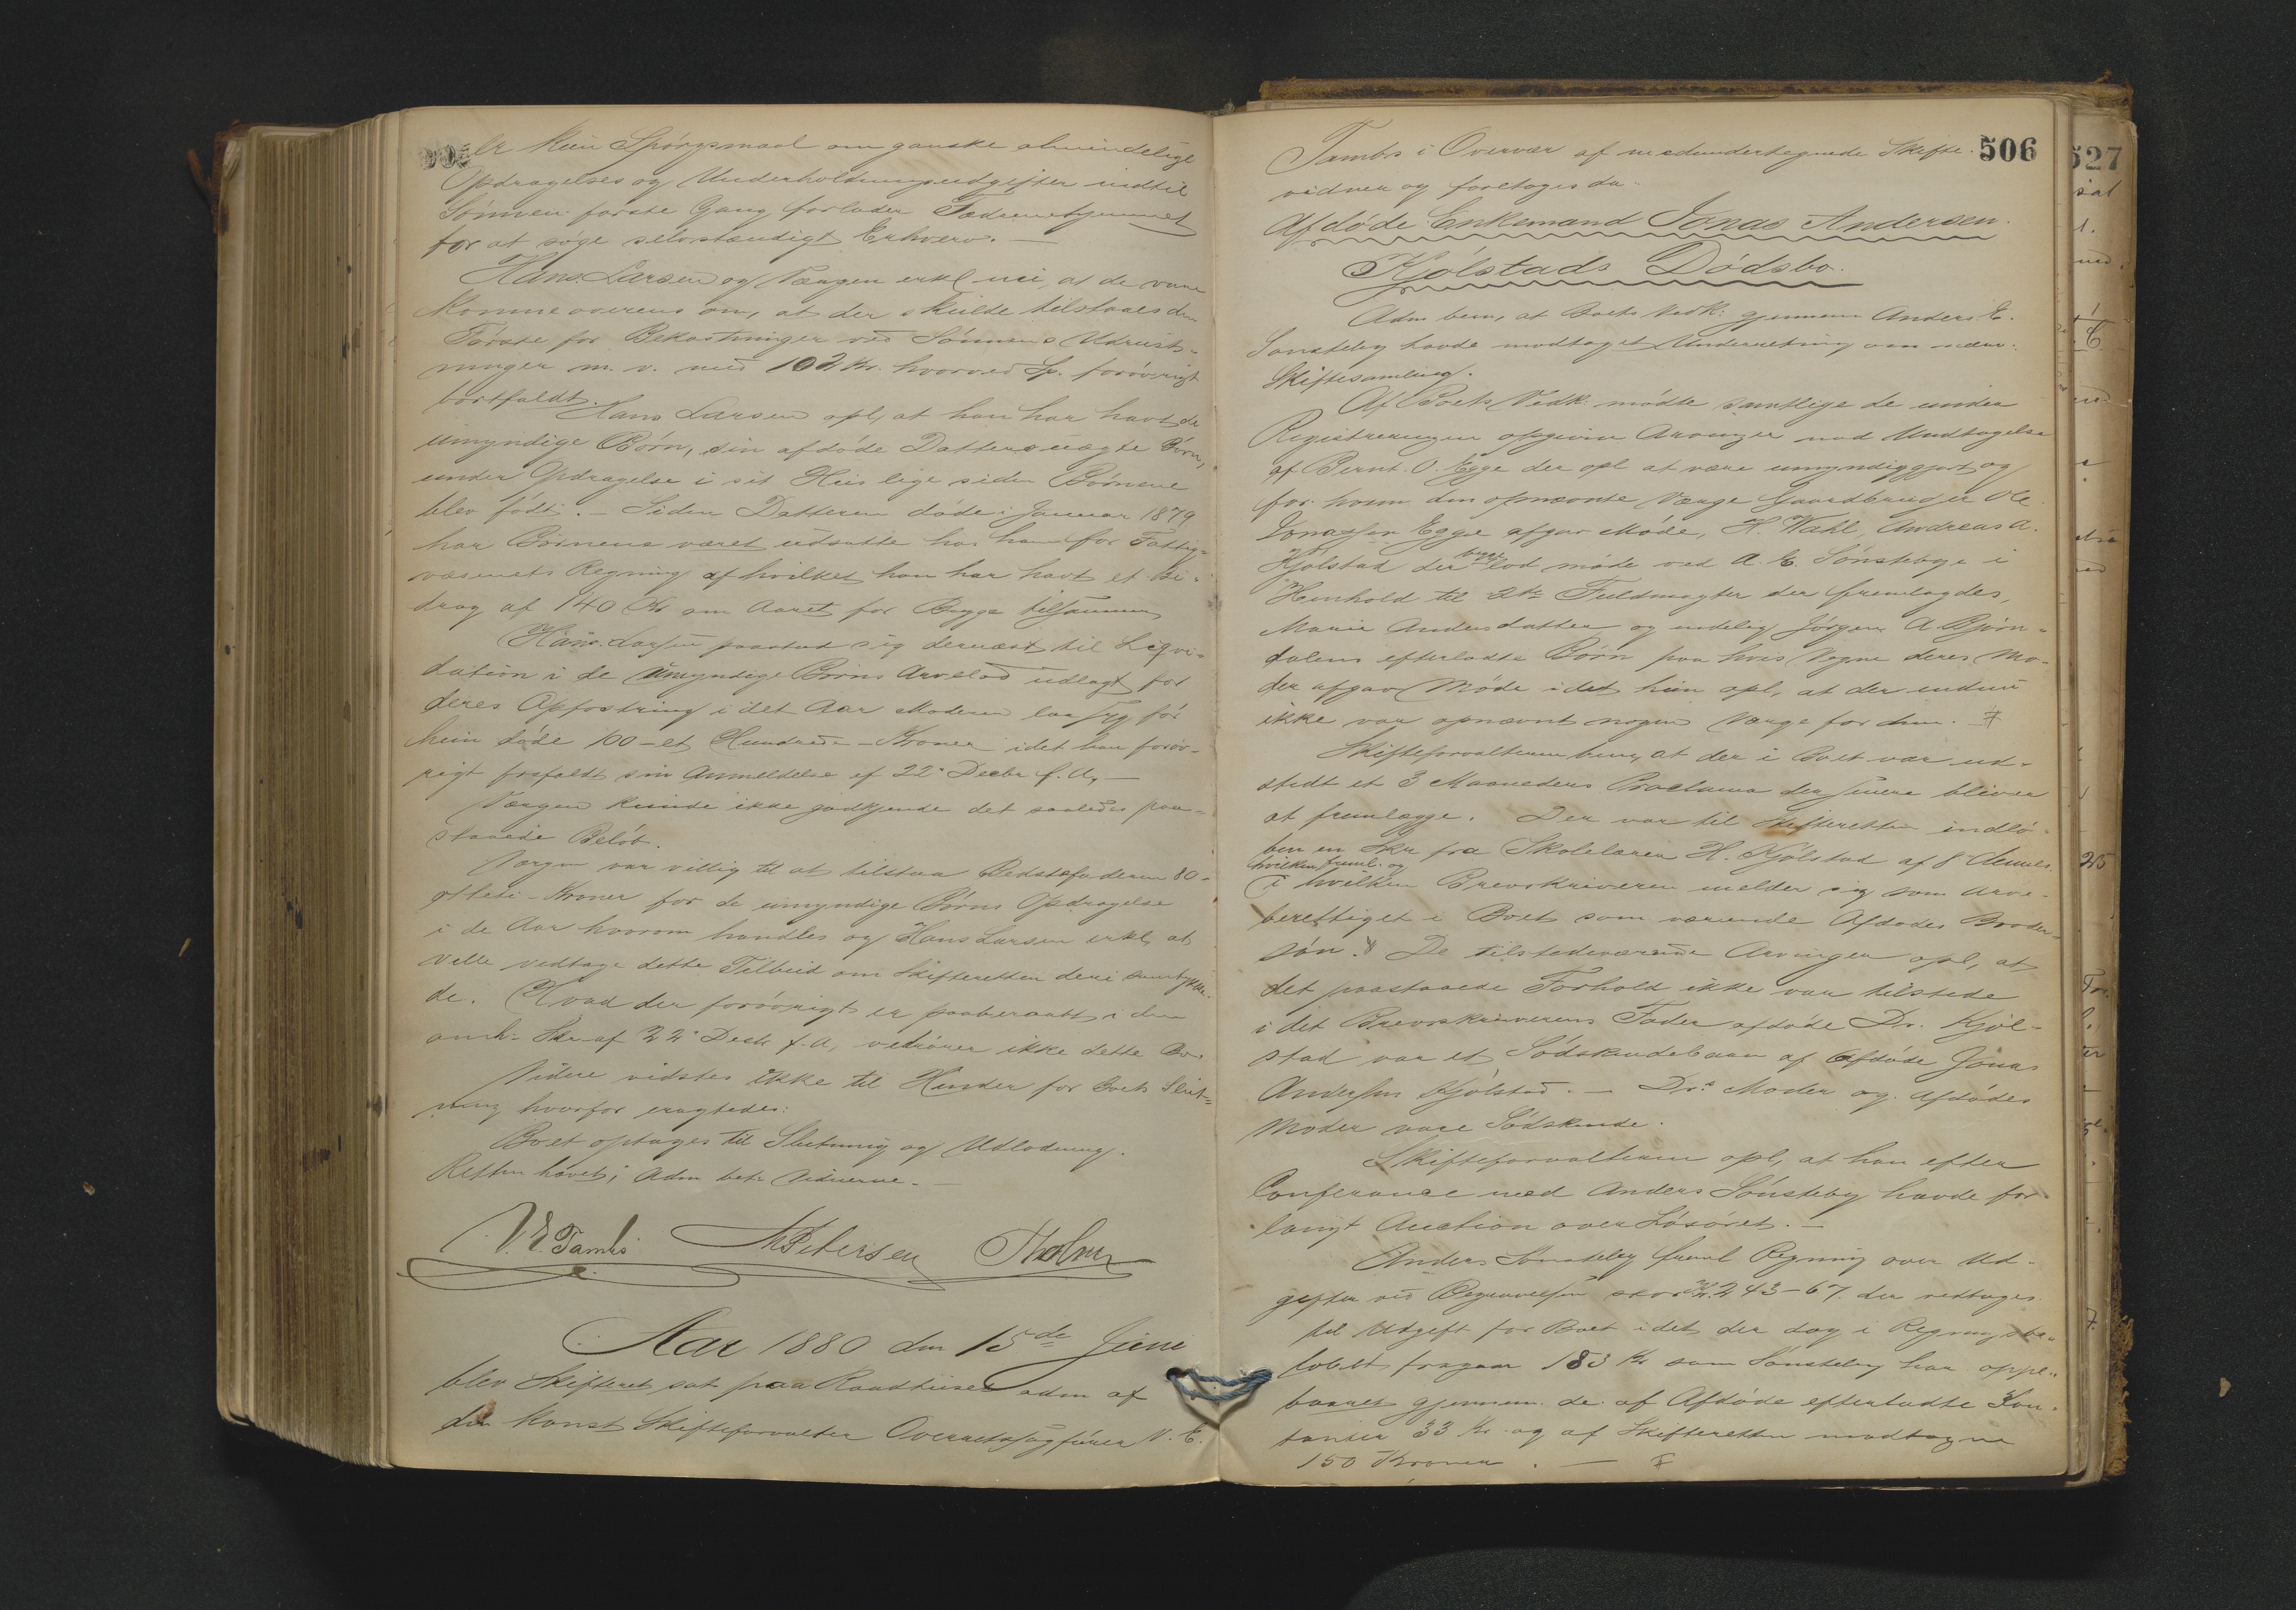 er kun Spörgsmaal om ganske almindelige
Opdragelses og Underholdningsudgifter indtil
Sönnen förste Gang forlader Fædrenehjemmet
for at söge selvstændigt Erhverv. —
Hans Larsen og Værgen erkl nu, at de vare
komne overens om, at der skulde tilstaaes den
Förste for Bekostninger ved Sönnens Udrust-
ninger m. v. med 102 Kr. hvorved Sp. forövrigt
bortfaldt.
Hans Larsen opl, at han har havt de
umyndige Börn, sin afdöde Datters uægte Börn,
under Opdragelse i sit Hus lige siden Börnene
blev födt. – Siden Datteren döde i Januar 1879
har Börnene været udsatte hos ham for Fattig-
væsenets Regning af hvilket han har havt et Bi-
drag af 140 Kr om Aaret for Begge tilsammen
Hans Larsen paastod sig dernæst til Liqvi-
dation i de umyndige Börns Arvelod udlagt for
deres Opfostring i det Aar Moderen laa syg för
hun döde 100 – et Hundrede – Kroner idet han foröv-
rigt frafaldt sin Anmeldelse af 22 Decbr f. A. —
Værgen kunde ikke godkjende det saaledes paa-
staaede Belöb.
Værgen var villig til at tilstaa Bedstefaderen 80 –
otteti – Kroner for de umyndige Börns Opdragelse
i de Aar hvorom handles og Hans Larsen erkl, at
ville vedtage dette Tilbud om Skifteretten deri samtykke-
de. Hvad der forövrigt er paaberaabt i den
omh. Skr af 22 Decbr f. A, vedrörer ikke dette Bo.
Videre vidstes ikke til Hinder for Boets Slut-
ning hvorfor eragtedes:
Boet optages til Slutning og Udlodning.
Retten hævet; Adm bet. Vidnerne. —
V. E. Tambs Petersen Holm
Aar 1880 den 15de Juni
blev Skifteret sat paa Raadhuset adm af
den Konst Skifteforvalter Overretssagförer V. E.
506
Tambs i Overvær af medundertegnede Skifte-
vidner og foretoges da
Afdöde Enkemand Jonas Andersen
Kjölstads Dödsbo.
Adm bem, at Boets Vedk. gjennem Anders E.
Sönsteby havde modtaget Underretning om nærv.
Skiftesamling.
Af Boets Vedk. mödte samtlige de under
Registreringen opgivne Arvinger med Undtagelse
af Bernt. O. Egge der opl at være umyndiggjort og
for hvem den opnævnte Værge Gaardbruger Ole
Jonassen Egge afgav Möde, H. Wahl, Andreas A.
Kjölstad der begge lod möde ved A. E. Sönsteby i
Henhold til 2de Fuldmagter der fremlagdes,
Marie Andersdatter og endelig Jörgen A. Bjørn-
dalens efterladte Börn paa hvis Vegne deres Mo-
der afgav Möde idet hun opl, at der endnu
ikke var opnævnt nogen Værge for dem.
Skifteforvalteren bem, at der i Boet var ud-
stedt et 3 Maaneders Proclama der senere bliver
at fremlægge. Der var til Skifteretten indlö-
ben en Skr fra Skolelærer H. Kjölstad af 8 dennes
hvilken freml. og
i hvilken Brevskriveren melder sig som Arve-
berettiget i Boet som værende Afdödes Broder-
sön. De tilstedeværende Arvinger opl, at
det paastaaede Forhold ikke var tilstede
i det Brevskriverens Fader afdöde Dr. Kjöl-
stad var et Södskendebarn af Afdöde Jonas
Andersen Kjölstad. – Drs Moder og Afdödes
Moder vare Södskende.
Skifteforvalteren opl, at han efter
Conferance med Anders Sönsteby havde for-
langt Auction over Lösöret. —
Anders Sönsteby freml Regning over Ud-
gifter ved Begravelsen stor Kr. 243 – 67. der vedtages
til Udgift for Boet idet der dog i Regningsbe-
löbet fragaar 183 Kr som Sönsteby har oppe-
baaret gjennem de af Afdöde efterladte Kon-
tanter 33 Kr. og af Skifteretten modtagne
150 Kroner. —
527
25